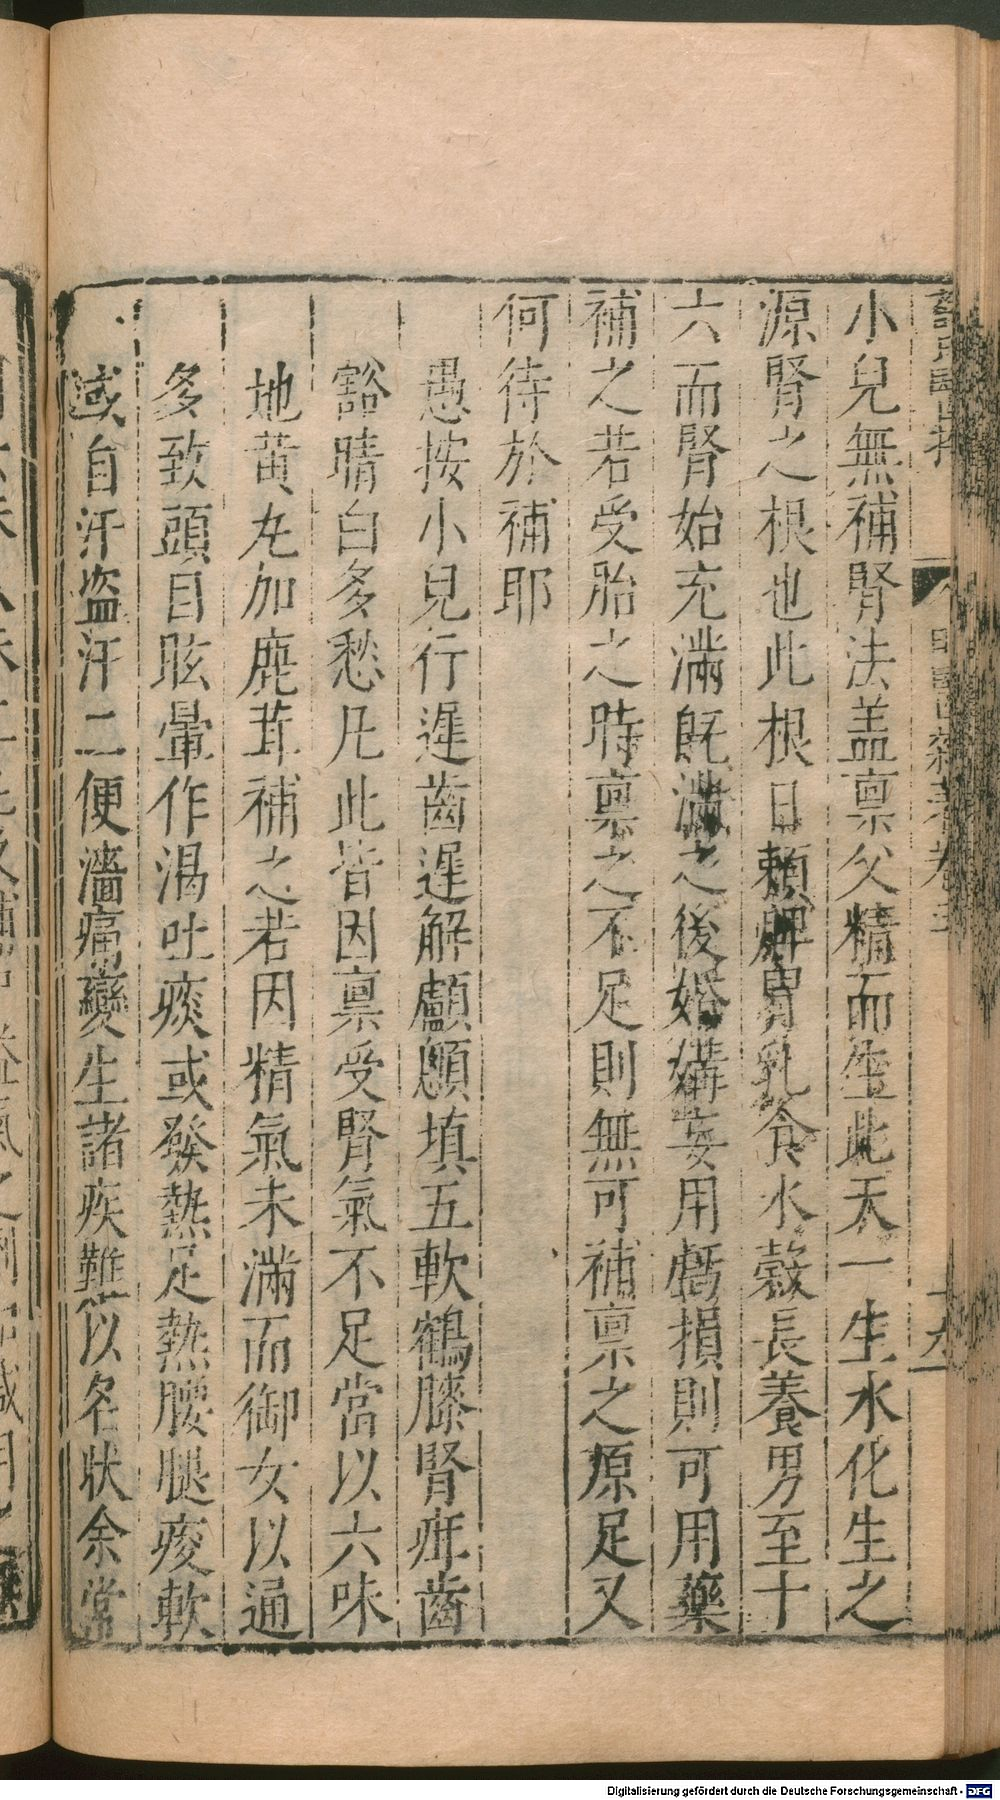 小兒無補腎法盖禀父精而生此天一生水化生之
源腎之根也此根日賴脾胃乳食水穀長養男至十
六而腎始充滿旣滿之後婚媾妄用虧損則可用藥
補之若受胎之時禀之不足則無可補禀之原足又
何待於補耶
愚按小兒行遲齒遲解顱顖填五軟鶴膝腎疳齒
豁睛白多愁凡此皆因禀受腎氣不足當以六味
地黃丸加鹿茸補之若因精氣未滿而御女以通
多致頭目眩暈作渴吐痰或發熱足熱腰腿痠軟
或自汗盜汗二便濇痛變生諸疾難以名狀余常
Digitalisierung gefördert durch die Deutsche Forschungsgemeinschaft - DFG